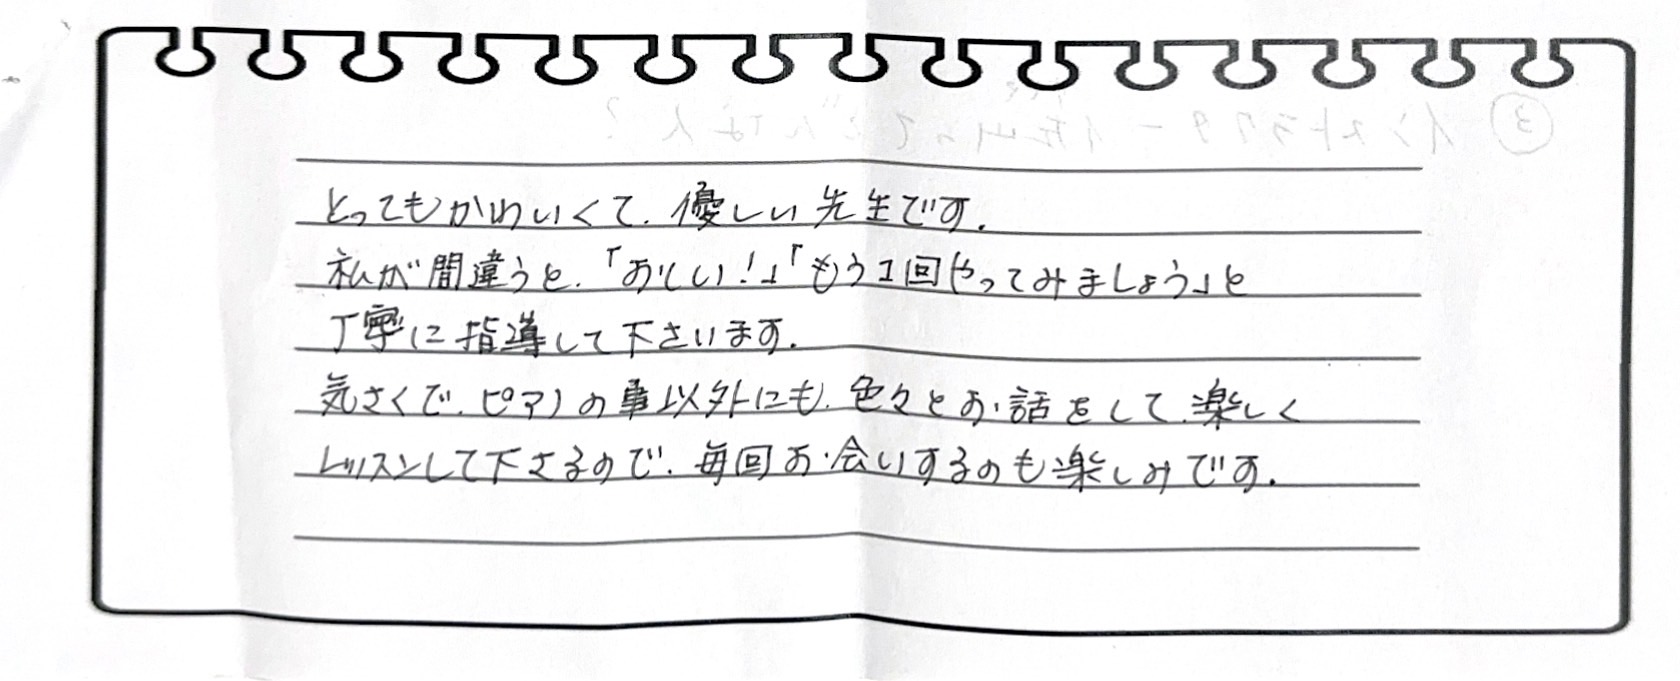 とってもかわいくて、優しい先生です。
私が間違うと、「おしい！」「もう1回やってみましょう」と
丁寧に指導して下さいます。
気さくで、ピアノの事以外にも、色々とお話をして、楽しく
レッスンして下さるので、毎回お会いするのも楽しみです。